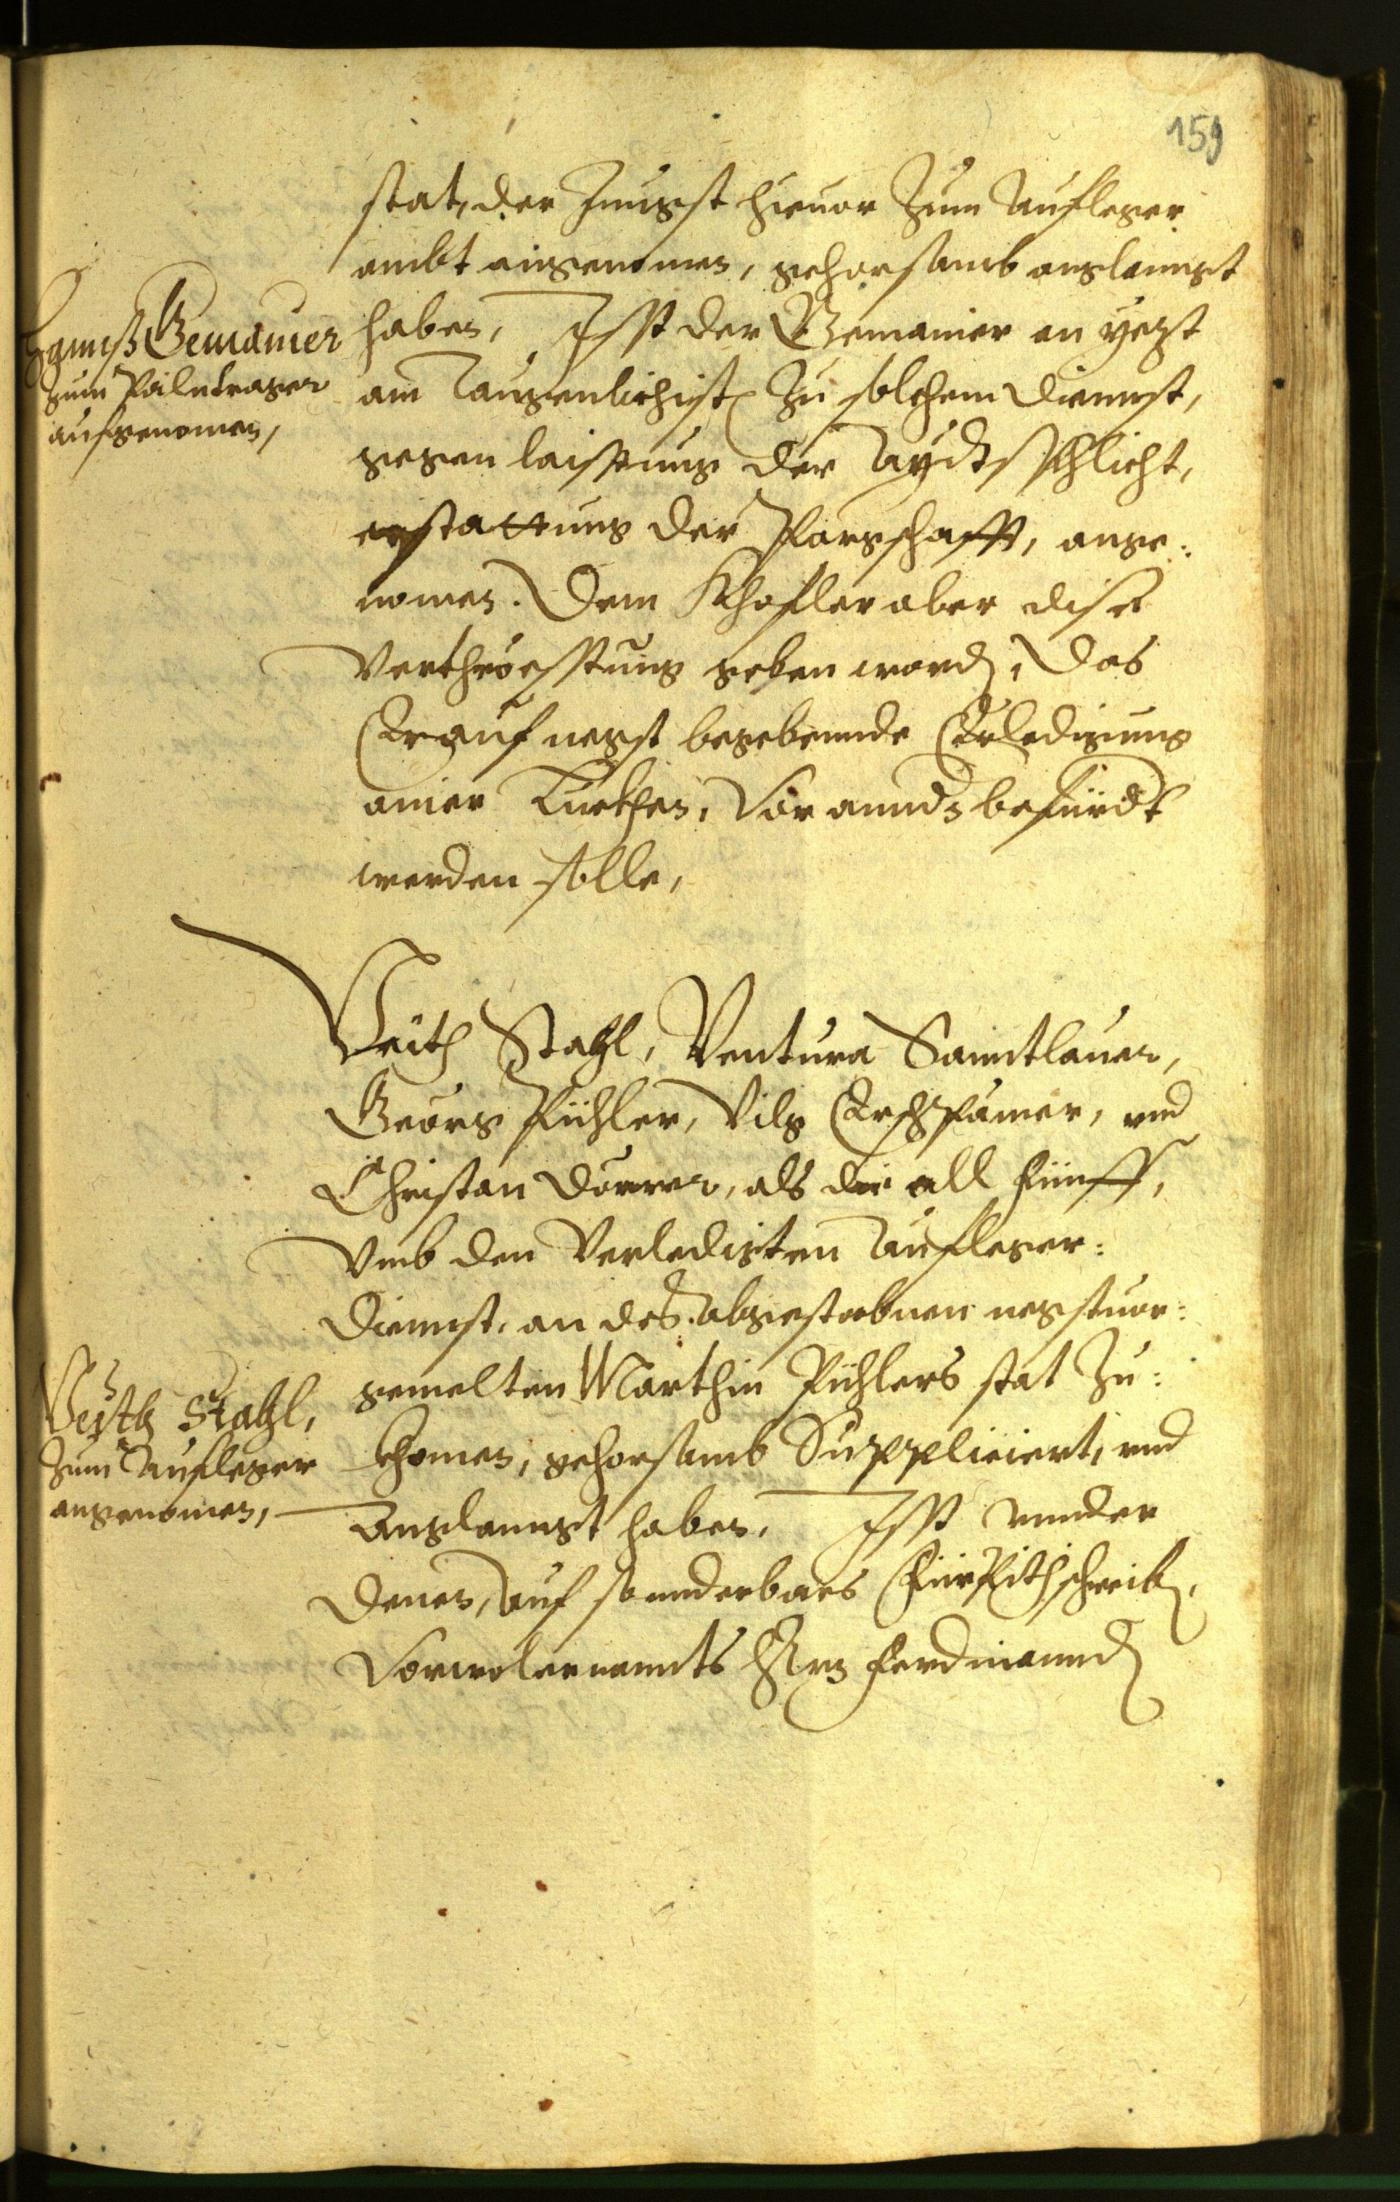 159
stat, der Jungst hieuor zum Aufleger
ambt angenomen, gehorsamb anglanngt
haben, Ist der Gemainer an yezt
am Taugenlichist zu solchem diennst,
gegen laistung der Aydtspflicht,
erstattung der Porgschafft, ange-
nomen. Dem Khofler aber dise
Verthröstung geben word, Das
Er auf negst begebennde Erledigung
ainer Lückhen, vor annd befürdt
werden solle,
Hannß Gemainer
zum Palntrager
aufgenomen,
Veith Stahl, Ventura
Georg Pichler, Vilg und
Christan Dorner, als die all Fünff,
Umb den Verledigten Aufleger-
Diennst, an des abgestorbnen negstuor-
gemelten Marthin Pichlers stat zu-
khomen, gehorsamb Suppliciert, und
Anglanngt haben, Ist vunder
denen, auf sonnderbars Fürpitschreib,
Vorwolernannts Hrn Ferdinannd
Veith Stahl,
zum Aufleger
angenomen,